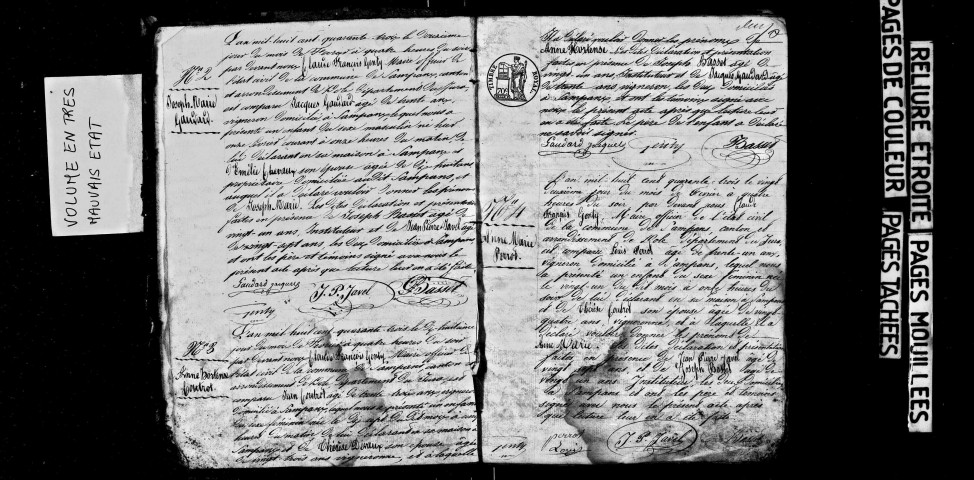 VOLUME EN TRES
MAUVAIS ETAT
N.º 2
Joseph Marie
Gaudard.
L'an mil huit cent quarante trois le douzième
jour du mois de Février à quatre heures du soir
par devant nous Claude François Genty Maire officier de
l'état civil de la commune de Sampans, canton
et arrondissement de Dole, département du Jura,
est comparu Jacques Gaudard âgé de trente ans,
vigneron domicilié à Sampans, lequel nous a
présenté un enfant du sexe masculin né le
onze dudit courant à onze heures du matin, de
lui déclarant en sa maison à Sampans et
d'Emélie Chevaux son épouse, âgée de
propriétaire domiciliée audit Sampans, et
auquel il a déclaré vouloir donner les prénoms
de Joseph Marie. Les dites déclaration et présentation
faites en présence de Joseph Basset âgé de
vingt un ans, Instituteur et de Jean Pierre Javel âgé
de vingt sept ans les deux domiciliés à Sampans
et ont les père et témoins signé avec nous le
présent acte après que lecture leur en a été faite.
Gaudard jacques
J. P. Javel
Basset
genty
N.º 3
Anne Hortense
Goutrot.
L'an mil huit cent quarante trois le dix huitième
jour du mois de Février à quatre heures du soir
par devant nous Claude François Genty Maire officier de
l'état civil de la commune de Sampans canton et
arrondissement de Dole département du Jura, est
comparu Jean Goutrot âgé de trente trois ans, vigneron
domicilié à Sampans, lequel nous a présenté un enfant
du sexe féminin née le dix sept du dit mois à cinq
heures du matin de lui déclarant en sa maison à
Sampans et de Thérèse son épouse âgée
de vingt trois ans vigneronne, et à laquelle
TIMBRE ROYAL
il a déclaré vouloir donner les prénoms de
Anne Hortense. Les dites déclaration et présentation
faites en présence de Joseph Basset âgé de
vingt un ans, Instituteur et de Jacques Gaudard âgé
de trente ans, vigneron les deux domiciliés
à Sampans, et ont les témoins signé avec
nous le présent acte après que lecture leur
en a été faite. Le père de l'enfant a déclaré
ne savoir signer.
Gaudard jacques
genty
Basset
N.º 4
Anne Marie
Perrot.
L'an mil huit cent quarante trois le vingt
deuxième jour du mois de Février à quatre
heures du soir par devant nous Claude
François Genty, Maire officier de l'état civil
de la commune de Sampans canton et
arrondissement de Dole département du Jura,
est comparu Louis Perrot âgé de trente un ans,
vigneron domicilié à Sampans, lequel nous
a présenté un enfant du sexe féminin née
le vingt un du dit mois à onze heures du
soir de lui déclarant en sa maison à Sampans
et de Thérèse Goutrot son épouse âgée de vingt
quatre ans, vigneronne, et à laquelle il a
déclaré vouloir donner les prénoms de
Anne Marie. Les dites déclaration et présentation
faites en présence de Jean Pierre Javel âgé de
vingt sept ans, et de Joseph Basset âgé de
vingt un ans Instituteur, les deux domiciliés
à Sampans et ont les père et témoins
signé avec nous le présent acte après
que lecture leur en a été faite.
perrot
Louis
J. P. Javel
Basset
genty
RELIURE ETROITE
PAGES MOUILLEES
PAGES DE COULEUR
PAGES TACHEES